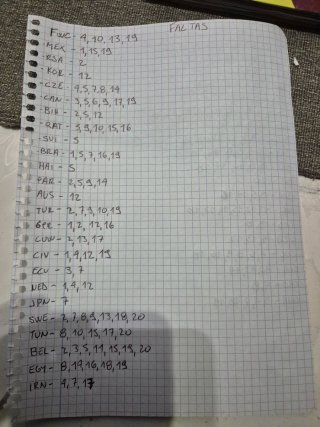 FALTAS
FWC - 4, 10, 13, 19
MEX - 1, 15, 19
RSA - 2
KOR - 12
CZE - 4, 5, 7, 8, 14
CAN - 3, 5, 6, 9, 17, 19
BIH - 2, 5, 12
QAT - 3, 9, 10, 15, 16
SUI - 5
BRA - 1, 5, 7, 16, 19
HAI - 5
PAR - 2, 5, 9, 14
AUS - 12
TUR - 2, 7, 9, 10, 19
GER - 1, 2, 12, 16
CUW - 2, 13, 17
CIV - 1, 4, 12, 19
ECU - 3, 7
NED - 1, 4, 12
JPN - 7
SWE - 2, 7, 8, 9, 13, 18, 20
TUN - 8, 10, 15, 17, 20
BEL - 2, 3, 5, 11, 15, 19, 20
EGY - 8, 14, 16, 18, 19
IRN - 4, 7, 17